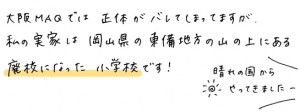 大阪MAQでは 正体がバレてしまってますが、
私の実家は岡山県の東備地方の山の上にある
廃校になった小学校です!
晴れの国から
やってきました